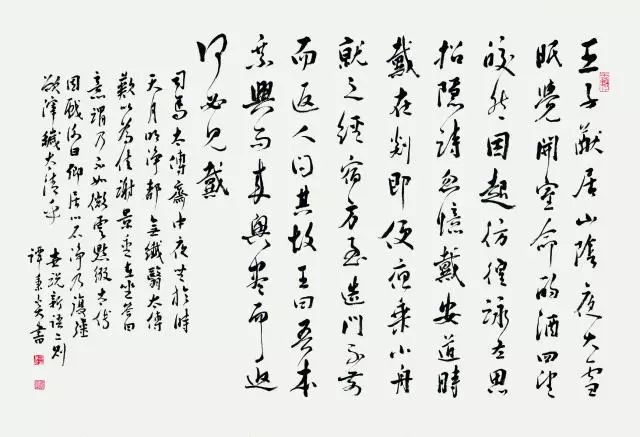 王子猷居山陰夜大雪
眠覺開室命酌酒四望
皎然因起彷徨詠左思
招隱詩忽憶戴安道時
戴在剡即便夜乘小舟
就之經宿方至造門不前
而返人問其故王曰吾本
乘興而來興盡而返
何必見戴
司馬太傅齋中夜坐於時
天月明淨都無纖翳太傅
歎以為佳謝景重在坐答曰
意謂乃不如微雲點綴太傅
因戲謝曰卿居心不淨乃復強
欲滓穢太清乎
世說新語二則
譚秉炎書